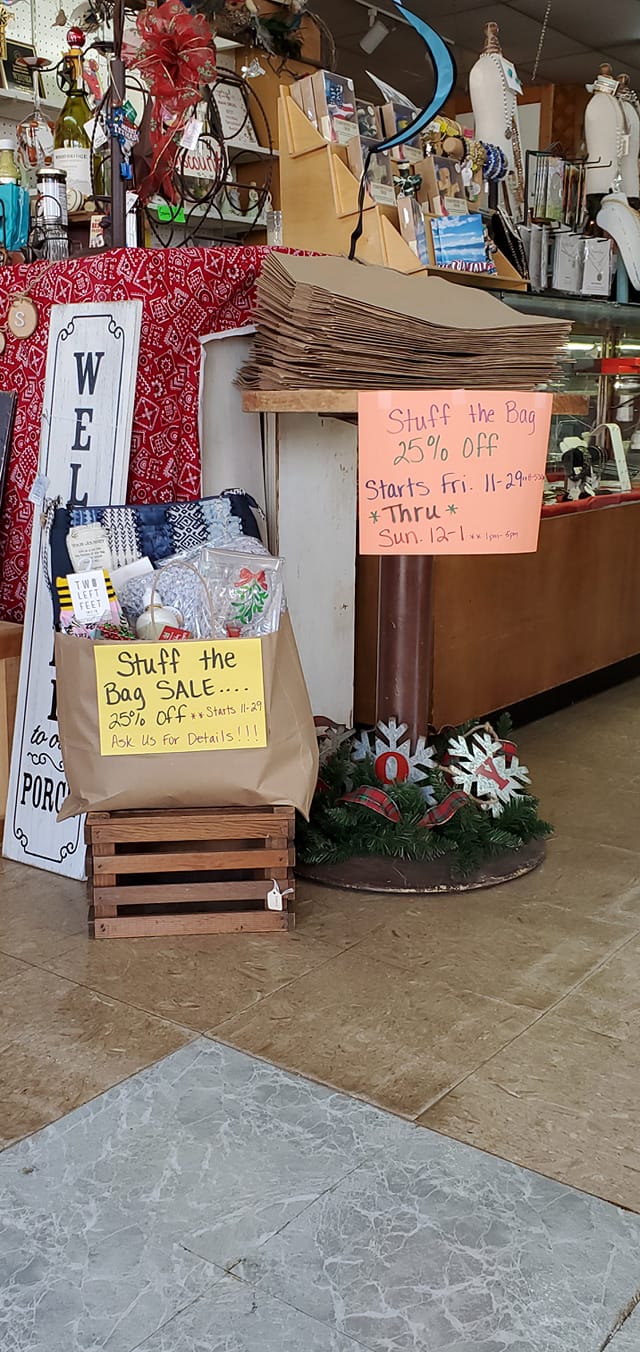 S
WEL
to o
PORC
Stuff the Bag
25% Off
Starts Fri. 11-29
*Thru*
Sun. 12-1 ** 1pm-5pm
TWO
LEFT
FEET
Stuff the
Bag SALE....
25% Off ** Starts 11-29
Ask Us For Details!!!
O
Y